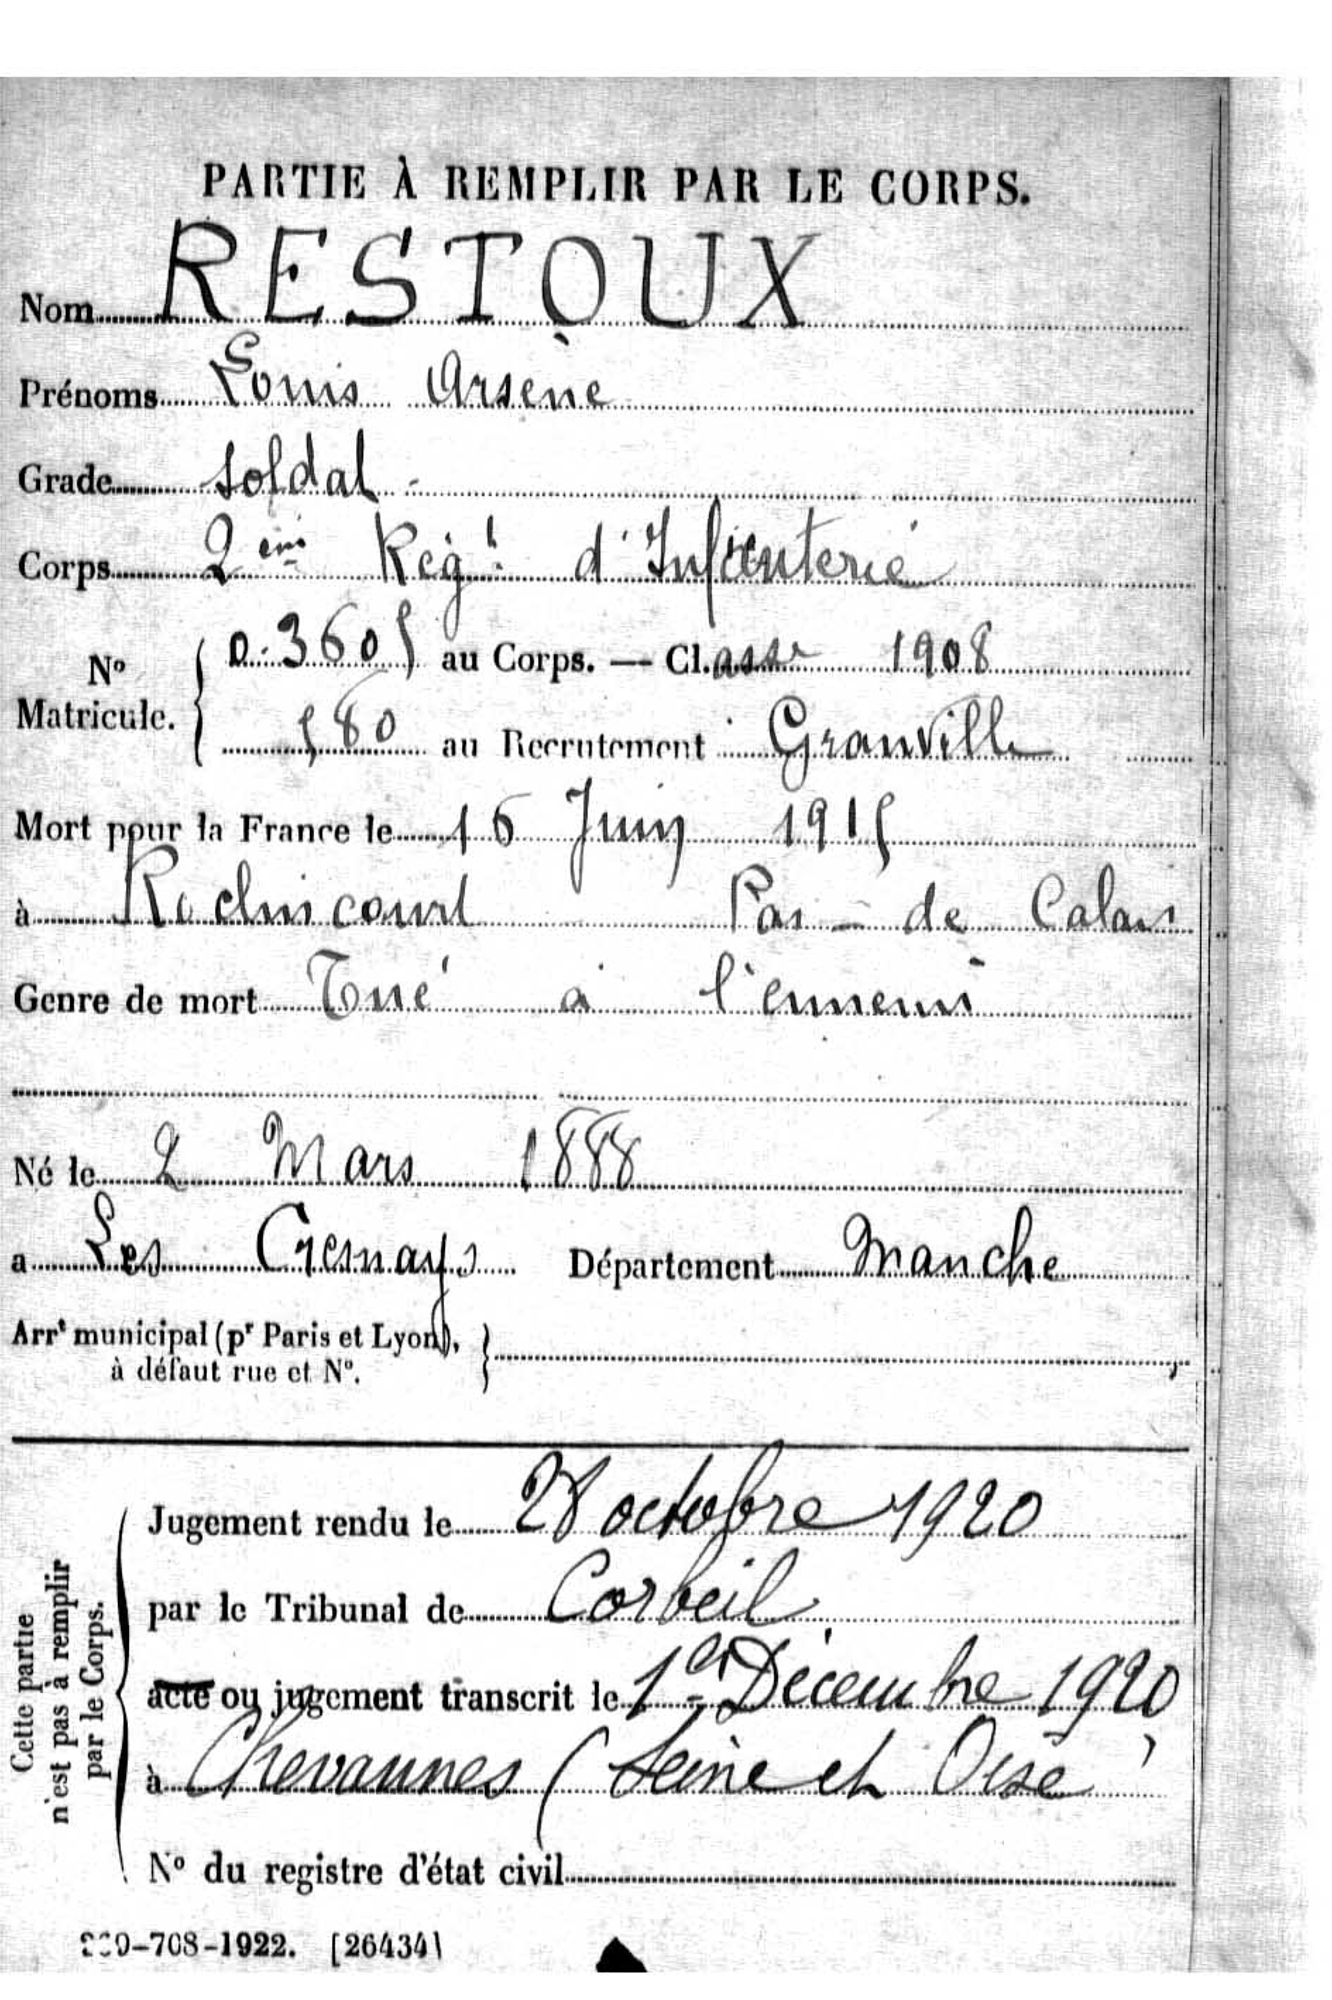 PARTIE À REMPLIR PAR LE CORPS.
Nom RESTOUX
Prénoms Louis Arsène
Grade soldat
Corps 2ème Régt d'Infanterie
No Matricule. { 0.3605 au Corps. — Cl.asse 1908
580 au Recrutement Granville
Mort pour la France le 16 Juin 1915
à Roclincourt Pas-de Calais
Genre de mort Tué à l'ennemi
Né le 2 Mars 1888
a Les Cresnays Département Manche
Arrt municipal (pr Paris et Lyon), }
à défaut rue et No.
Cette partie n'est pas à remplir par le Corps.
Jugement rendu le 28 octobre 1920
par le Tribunal de Corbeil
acte ou jugement transcrit le 1er Décembre 1920
à Chevannes (Seine et Oise)
No du registre d'état civil
-708-1922. [26434]